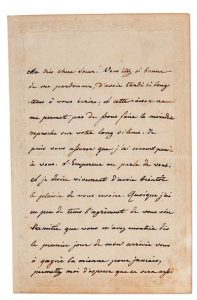 Ma très chère Soeur! Vous êtes si bonne
de me pardonner, d'avoir tardé si long-
tems à vous écrire, et cette raison ne
me permet pas de vous faire le moindre
reproche sur votre long silence. Je
puis vous assurer que j'ai souvent pensé
à vous. l'Empereur me parle de vous
et je désire vivement d'avoir bientôt
le plaisir de vous revoir. Quoique j'ai
eu peu de tems l'agrément de vous voir
l'amitié que vous m'avez montrée dès
le premier jour de mon arrivée vous
a gagné la mienne pour jamais,
permettez moi d'espérer que ce sera aussi